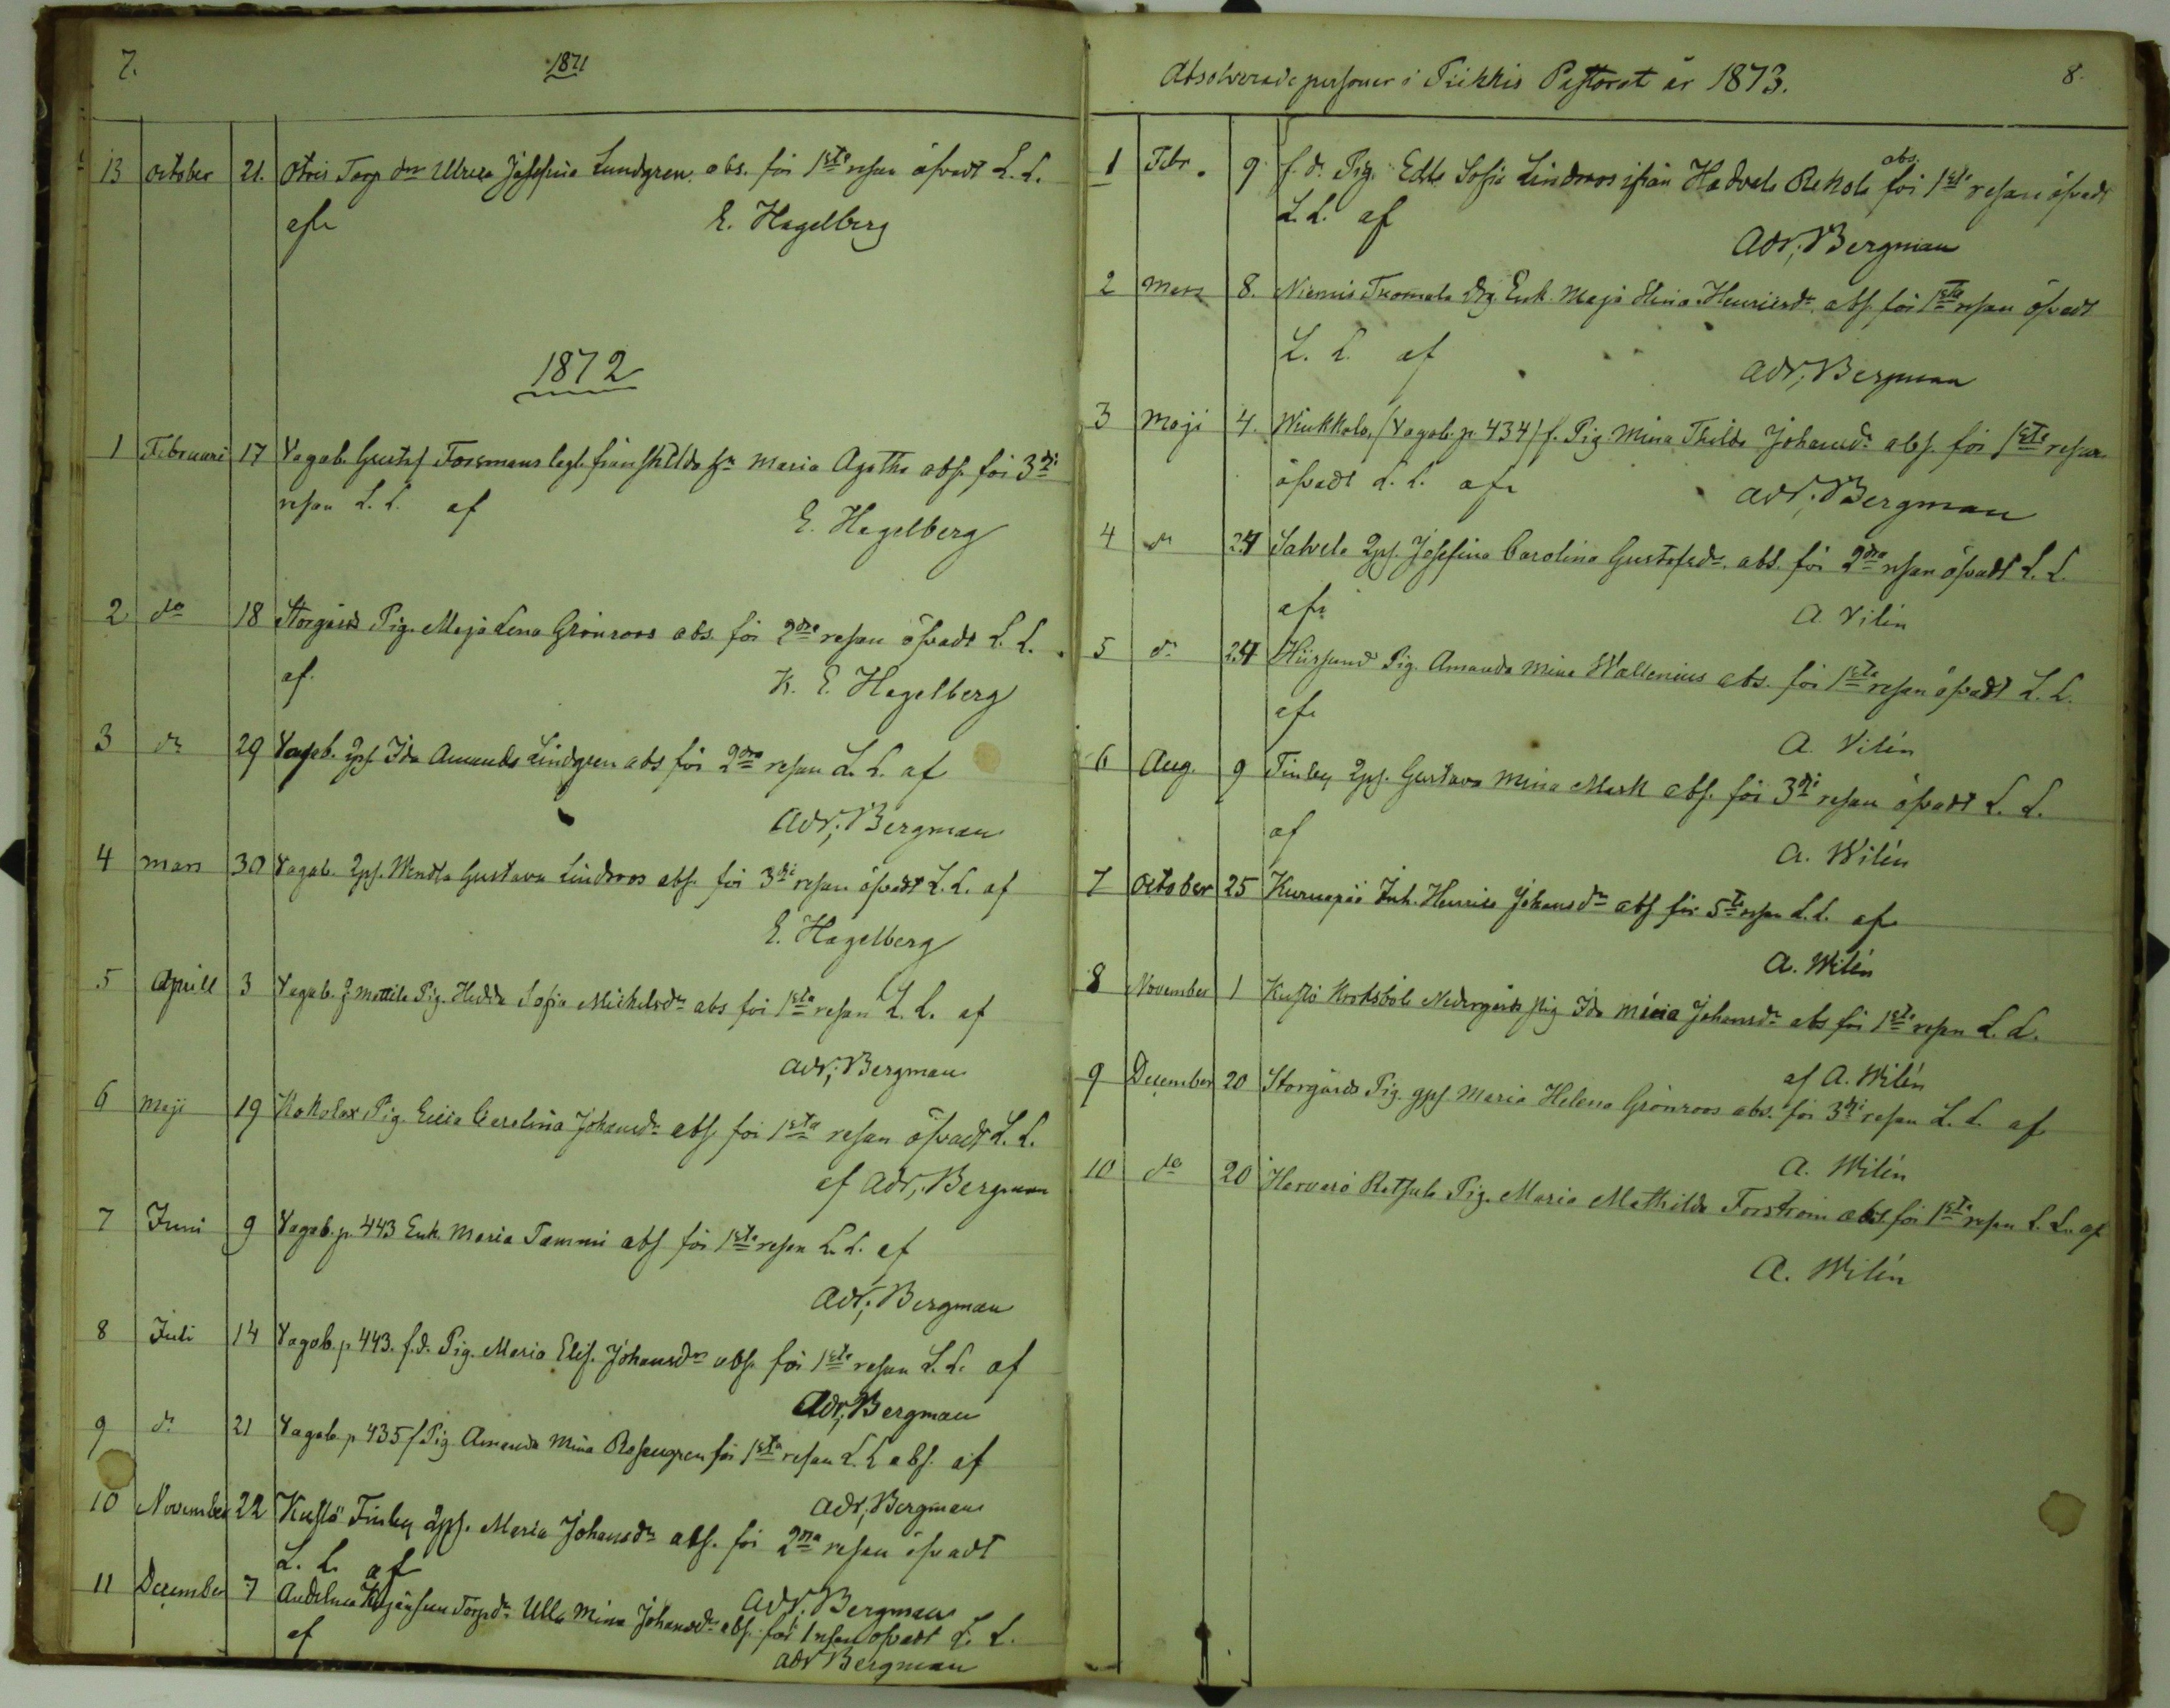 7.
1871
13 October 21. Otris Torp dr Ulrica Josefina Lundgren. abs. för 1sta resan öfvadt L. L.
af E. Hagelberg
1872
1 Februari 17 Vagab. Gustaf Forsmans legl. frånskilda hu Maria Agatha abs. för 3dje
resan L. L. af E. Hagelberg
2 do 18 Storgårds Pig. Maja Lena Grönroos abs. för 2dra resan öfvadt L. L.
af. K. E. Hagelberg
3 do 29 Vagab. Qps. Ida Amanda Lindgren abs för 2dra resan L. L. af
Adr. Bergman
4 mars 30 Vagab. Qps. Wendla Gustava Lindroos abs. för 3dje resan öfvadt L. L. af
E. Hagelberg
5 April 3 Vagab. Mattila Pig. Hedda Sofia Michelsdr abs för 1sta resan L. L. af
Adr. Bergman
6 Maji 19 Kokolax Pig. Carolina Johansdr abs för 1sta resan öfvadt L. L.
af Adr. Bergman
7 Juni 9 Vagab. p. 443 Enk. Maria Tammi abs för 1sta resan L. L. af
Adr. Bergman
8 Juli 14 Vagab. p 443. f.d. Pig. Maria Elis. Johansdr abs. för 1sta resan L. L. af
Adr. Bergman
9 do 21 Vagab. p 435 f. Pig Amanda Mina Rosengren för 1sta resan L. L abs. af
Adr. Bergman
10 November 22 Kustö Finby Qps. Maria Johansdr abs. för 2dra resan öfvadt
L. L. af Adr. Bergman
11 December 7 Torpdr Ulla Mina Johansdr abs. för 1 resan öfvadt L. L.
af Adr Bergman
Absolverade personer i Piikkis Pastorat år 1873. 8.
1 Febr. 9 f. d. Pig. Edla Sofia Lindroos ifrån Hadvala Rekola abs. för 1sta resan öfvadt
L. L. af Adr. Bergman
2 Mars 8. Niemis Tuomola Enk. Maja Stina Henricsdr. abs. för 1sta resan öfvadt
L. L. af Adr. Bergman
3 Maji 4. Wiukkala, (Vagab. p. 434) f. Pig. Mina Thilda Johansdr abs. för 1sta resan
öfvadt L. L. af Adr. Bergman
4 do 24 Salvela Qps. Josefina Carolina Gustafsdr. abs. för 2dra resan öfvadt L. L.
af A. Vilén
5 do 24 Hiirsund Pig. Amanda Mina Wallenius abs. för 1sta resan öfvadt L. L.
af A. Vilén
6 Aug. 9 Finby Qps. Gustava Mina Mark abs. för 3dje resan öfvadt L. L.
af A. Wilén
7 October 25 Kuruapää Inh. Henrica Johansdr abs för 5te resan L. L. af
A. Wilén
8 November 1 Kustö Kroksböle Nedergårds pig Ida Maria Johansdr abs för 1sta resan L. L.
af A. Wilén
9 December 20 Storgårds Pig. qps Maria Helena Grönroos abs. för 3dje resan L. L. af
A. Wilén
10 do 20 Harvarö Ratsula Pig. Maria Mathilda Forström abs. för 1sta resan L. L. af
A. Wilén